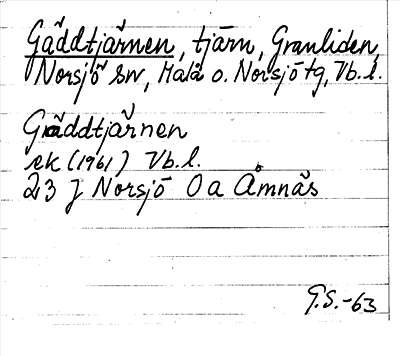 Gäddtjärnen, tjärn, Granliden,
Norsjö sn, Malå o. Norsjö tg, Vb.l.
Gäddtjärnen
ek (1961) Vb.l.
23 J Norsjö 0 a Åmnäs
G.S.-63